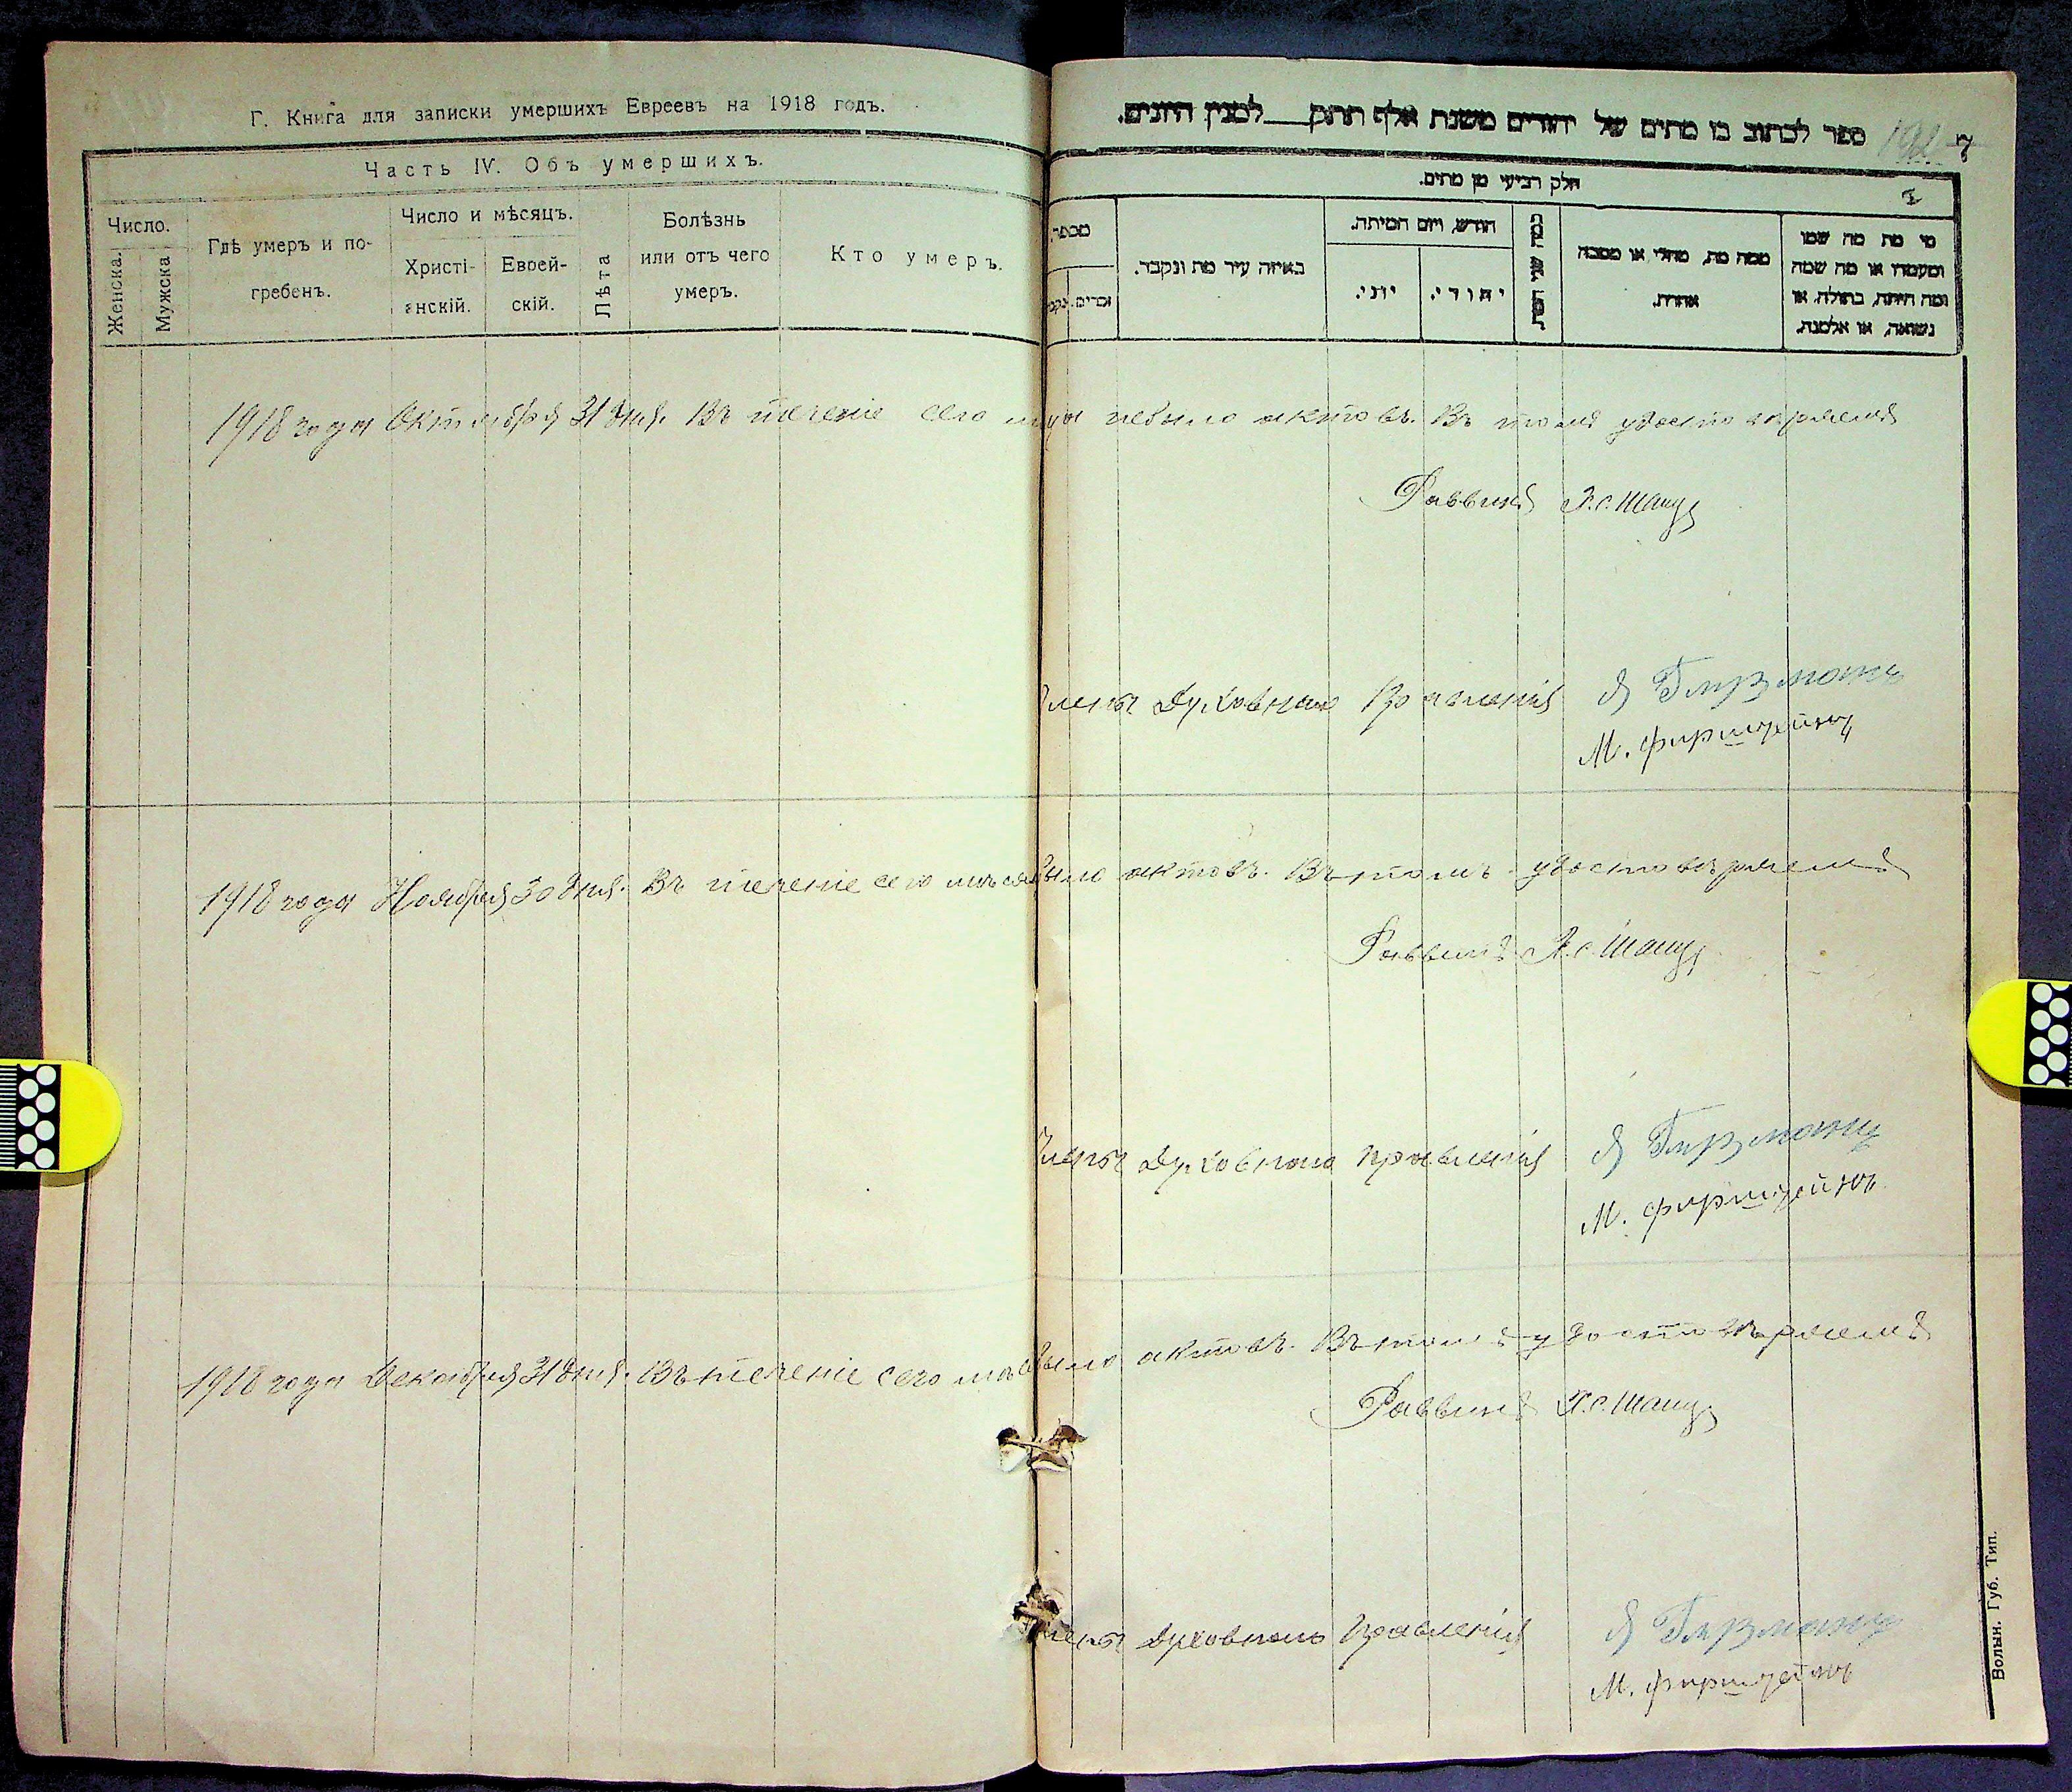 Г. Книга для записки умершихъ Евреевъ на 1918 годъ.
Часть IV. Объ умершихъ.
Число.
Женска.
Мужска.
Гдѣ умеръ и по-
гребенъ.
Число и мѣсяцъ.
Христі-
анскій.
Еврей-
скій.
Лѣта
Болѣзнь
или отъ чего
умеръ.
Кто умеръ.
ספר לכתוב בו מתים של יהודים משנת אלף תתק למנין היונים.
7
חלק רביעי מן מתים.
מספר.
זכרים.
באיזה עיר מת ונקבר.
חודש ויום המיתה.
יוני.
יהודי.
ממה מת, מחלי או מסבה
אחרת.
מי מת מה שמו
ומעמדו או מה שמה
ומה היתה, בתולה, או
נשואה, או אלמנה.
1918 года Октября 31 дня. Въ теченіе сего небыло актовъ. Въ томъ удостовѣряемъ
Раввинъ Х.С. Шацъ
Члены Духовнаго Правленія
М. Фирштейнъ
1918 года Ноября 30 дня. Въ теченіе сего было актовъ. Въ томъ удостовѣряемъ
Раввинъ Х.С. Шацъ
Члены Духовнаго правленія
М. Фирштейнъ
1918 года Декабря 31 дня. Въ теченіе сего было актовъ. Въ томъ удостовѣряемъ
Раввинъ Х.С. Шацъ
Члены Духовнаго Правленія
М. Фирштейнъ
Волын. Губ. Тип.